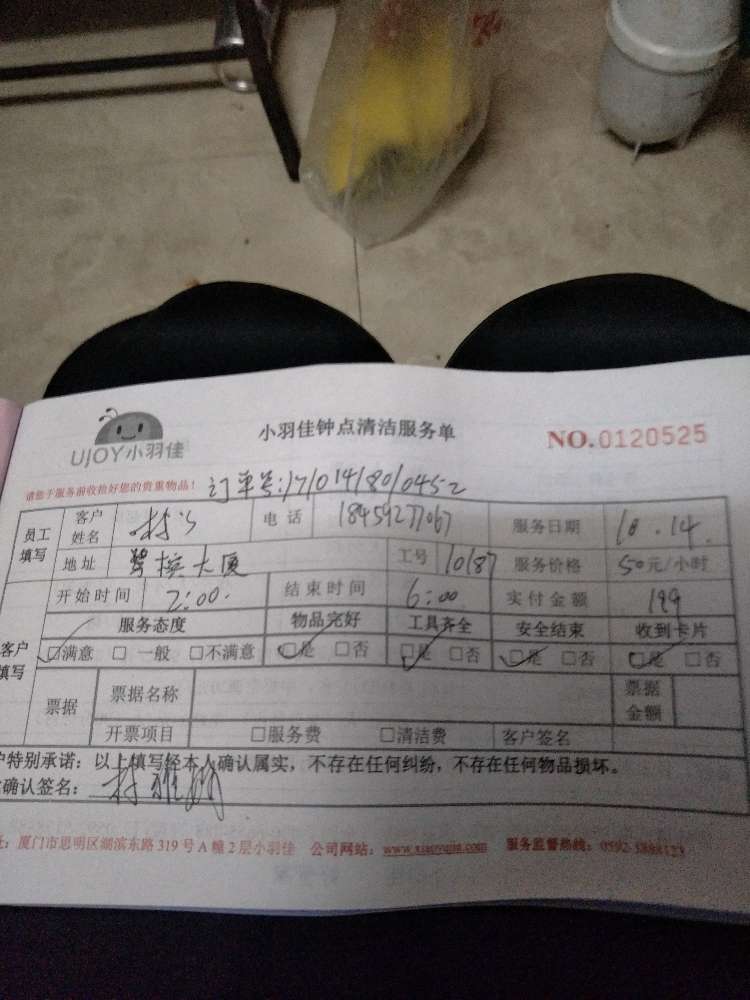 UJOY小羽佳
小羽佳钟点清洁服务单
NO.0120525
请您于服务前收拾好您的贵重物品!
订单号:17101418010452
员工填写 客户姓名 电话 18459277067 服务日期 10.14.
地址 大厦 工号 10187 服务价格 50元/小时
开始时间 2:00. 结束时间 6:00 实付金额 199
客户填写 服务态度 物品完好 工具齐全 安全结束 收到卡片
☑满意 □一般 □不满意 ☑是 □否 ☑是 □否 ☑是 □否 ☑是 □否
票据 票据名称 票据金额
开票项目 □服务费 □清洁费 客户签名
户特别承诺:以上填写经本人确认属实,不存在任何纠纷,不存在任何物品损坏。
确认签名:
厦门市思明区湖滨东路319号A幢2层小羽佳 公司网站:www.xiaoyujia.com 服务监督热线:0592